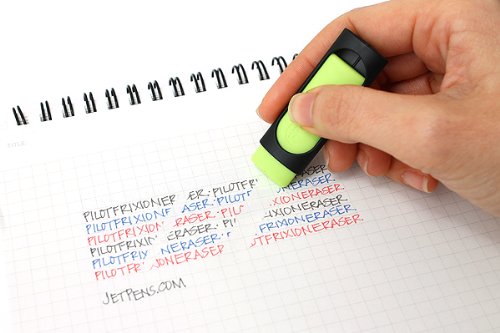 TITLE
PILOTFRIXIONER ER·PILOTF ERASER
PILOTFRIXIONF ASER·PILOT NERASER
PILOTFRIXION ERASER·PIL IXIONERASER
PILOTFRIXI ERASER·P IXIONERASER
PILOTFRIX NERASER·P FRIXIONERASER
PILOTFR IONERASER OTFRIXIONERASER
JETPENS.COM